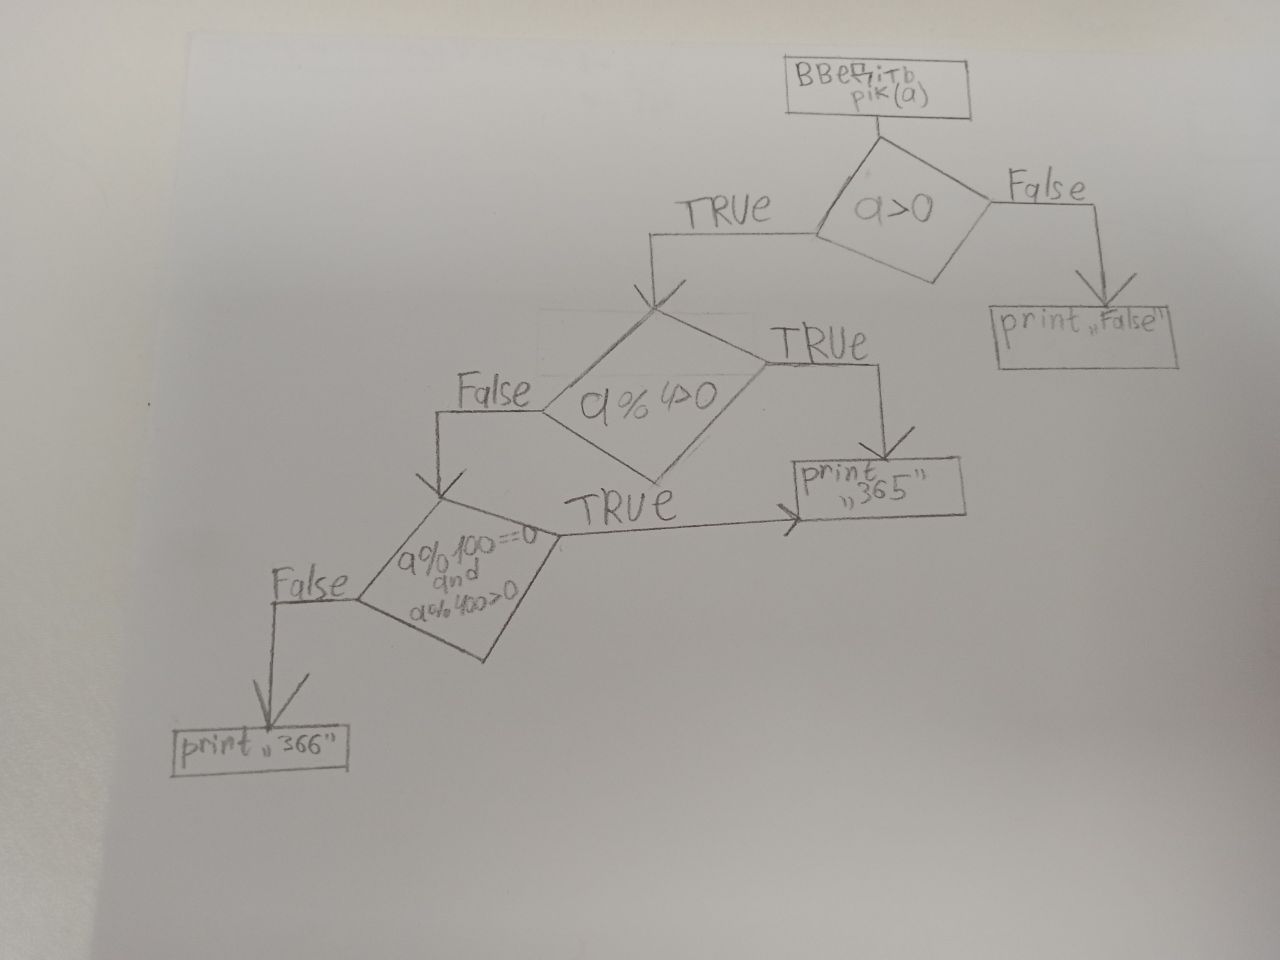 ВВедіть
рік(a)
a>0
TRUe
False
print „False"
a%4>0
TRUe
False
print
„365"
a%100==0
and
a%400>0
TRUe
False
print „366"